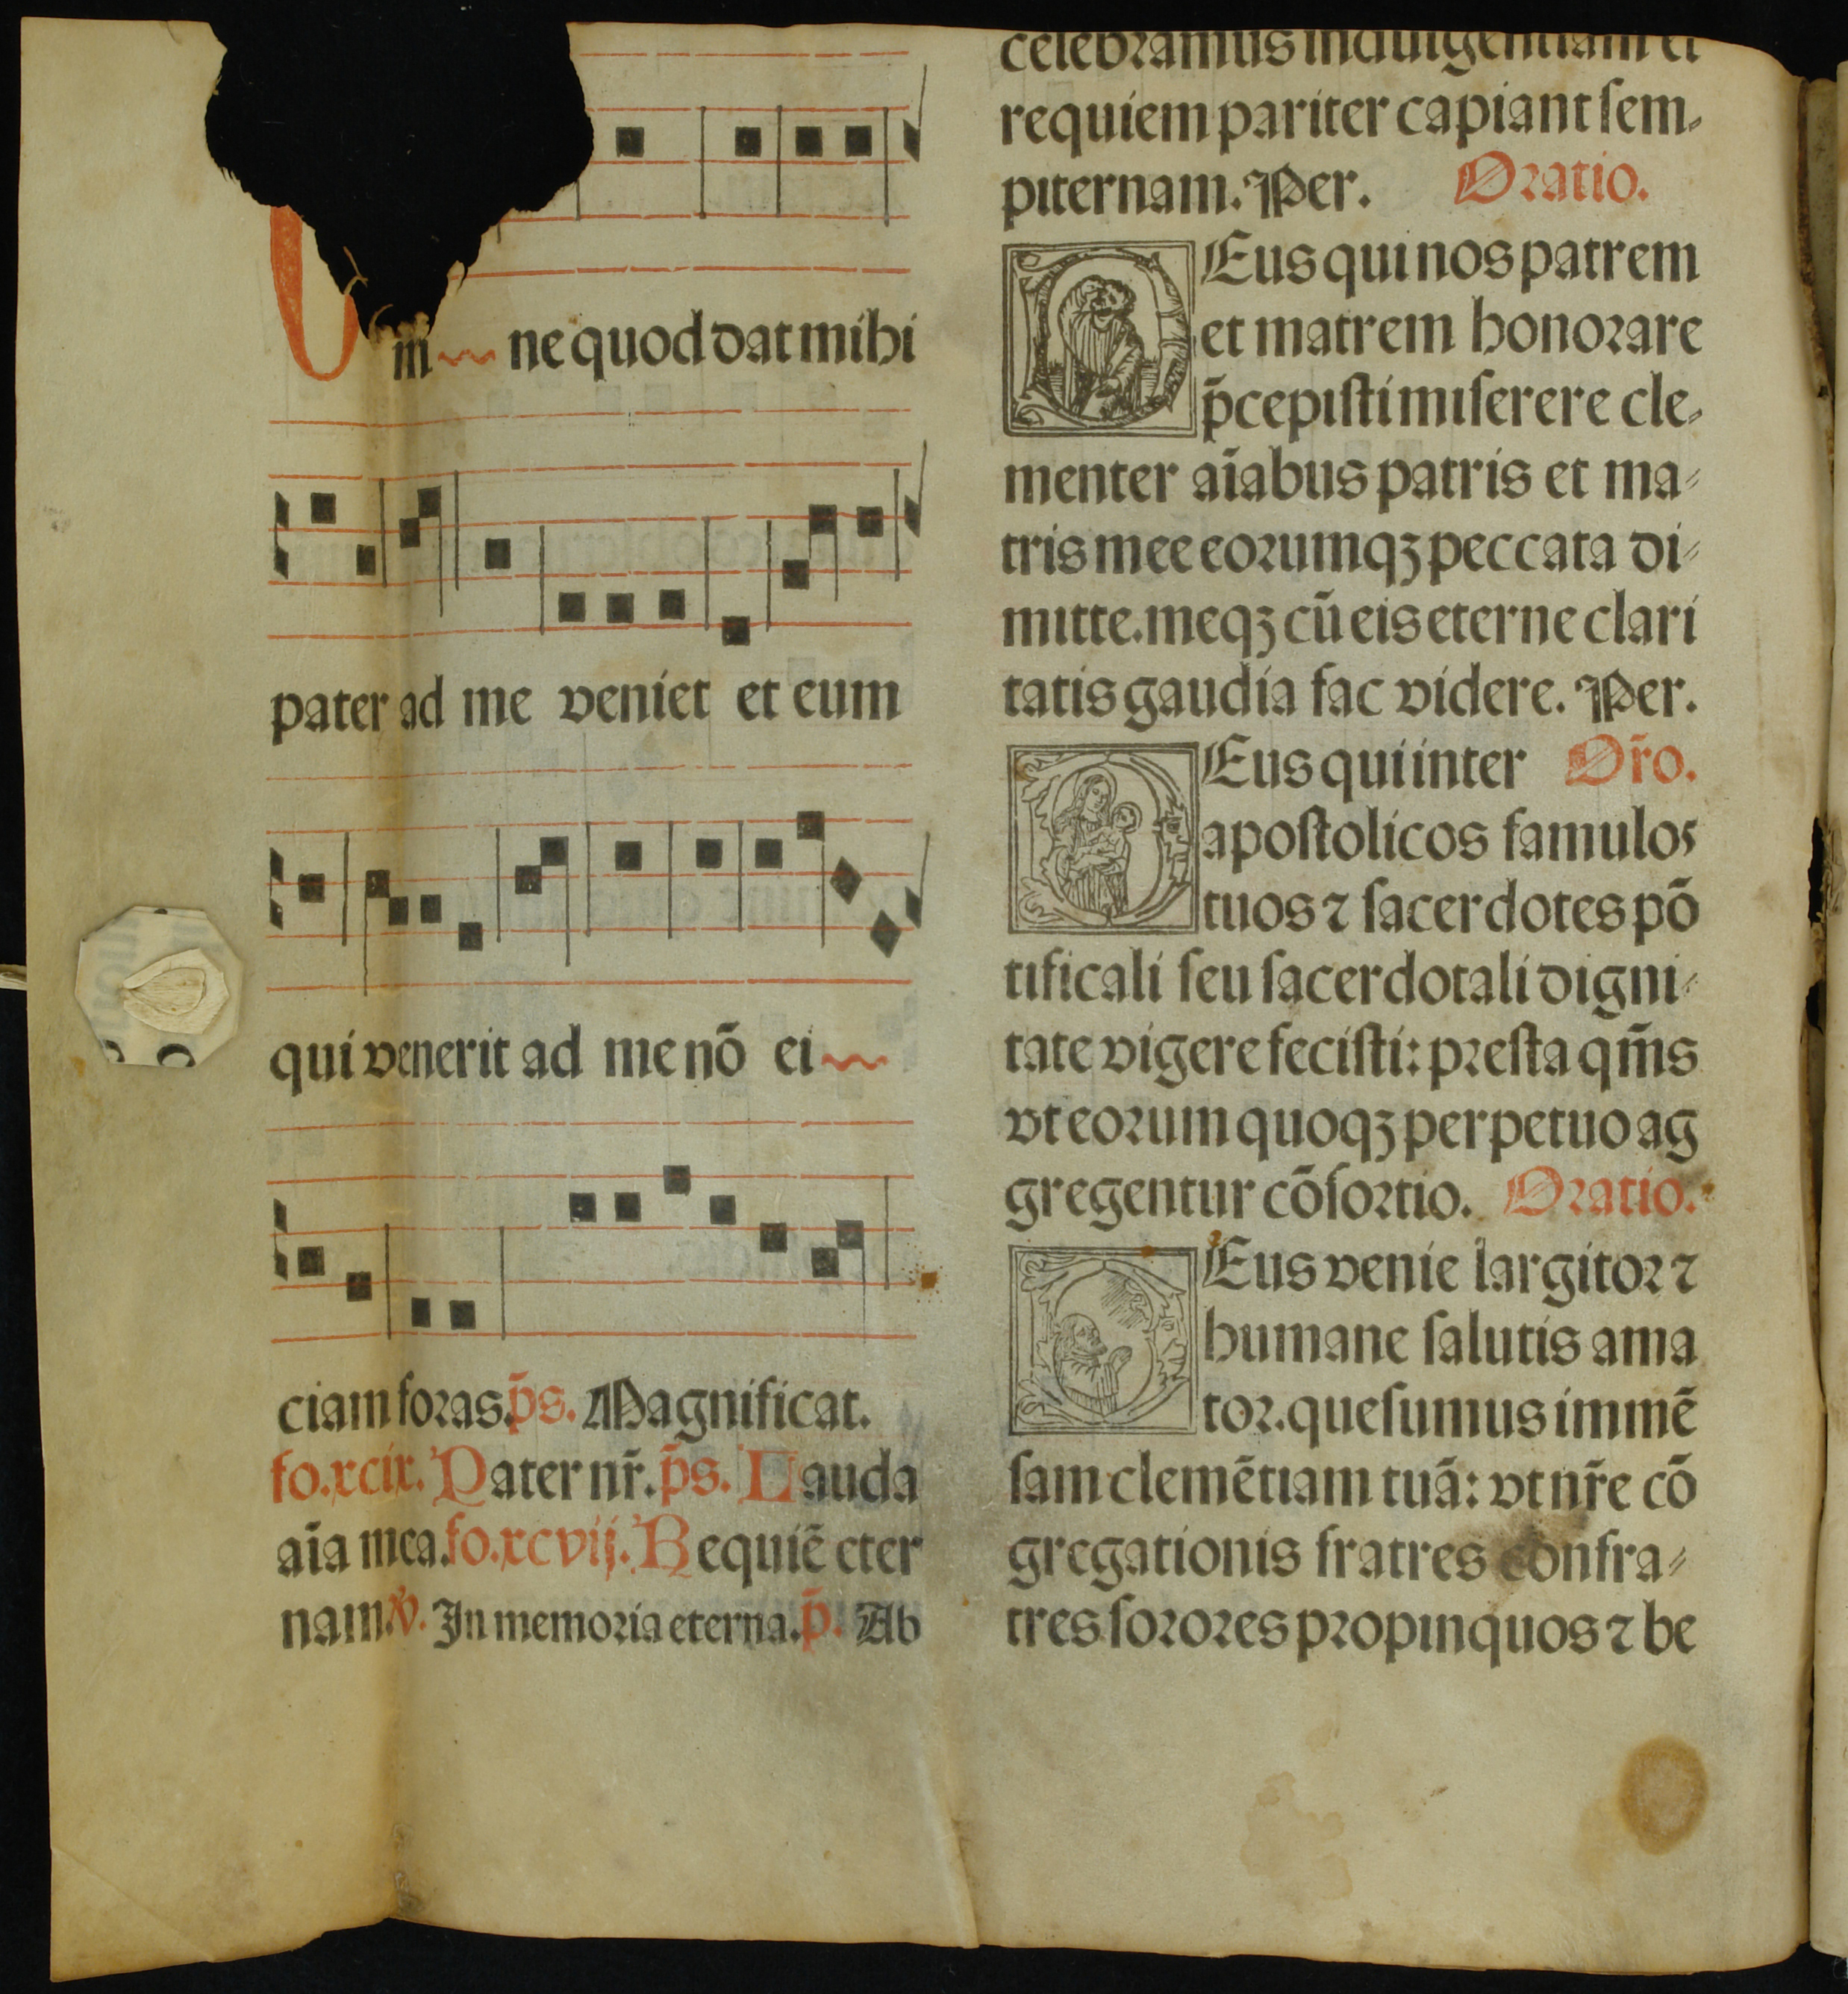 m ne quod dat mihi
pater ad me veniet et eum
qui venerit ad me nō ei
ciam foras. p̄s. Magnificat.
fo. xcix. Pater nr̄. p̄s. Lauda
aīa mea. fo. xcvij. Requiē eter
nam. ℣. In memoria eterna. p̄. Ab
celebramus indulgentiam et
requiem pariter capiant ſem⸗
piternam. Per. Oratio.
DEus qui nos patrem
et matrem honorare
p̄cepiſti miſerere cle⸗
menter aīabus patris et ma⸗
tris mee eorumqꝫ peccata di⸗
mitte. meqꝫ cū eis eterne clari
tatis gaudia fac videre. Per.
DEus qui inter Or̄o.
apoſtolicos famulos
tuos ⁊ ſacerdotes pō
tificali ſeu ſacerdotali digni⸗
tate vigere feciſti: preſta qm̄s
vt eorum quoqꝫ perpetuo ag
gregentur cōſortio. Oratio.
DEus venie largitor ⁊
humane ſalutis ama
tor. queſumus immē
ſam clemētiam tuā: vt nr̄e cō
gregationis fratres confra⸗
tres ſorores propinquos ⁊ be